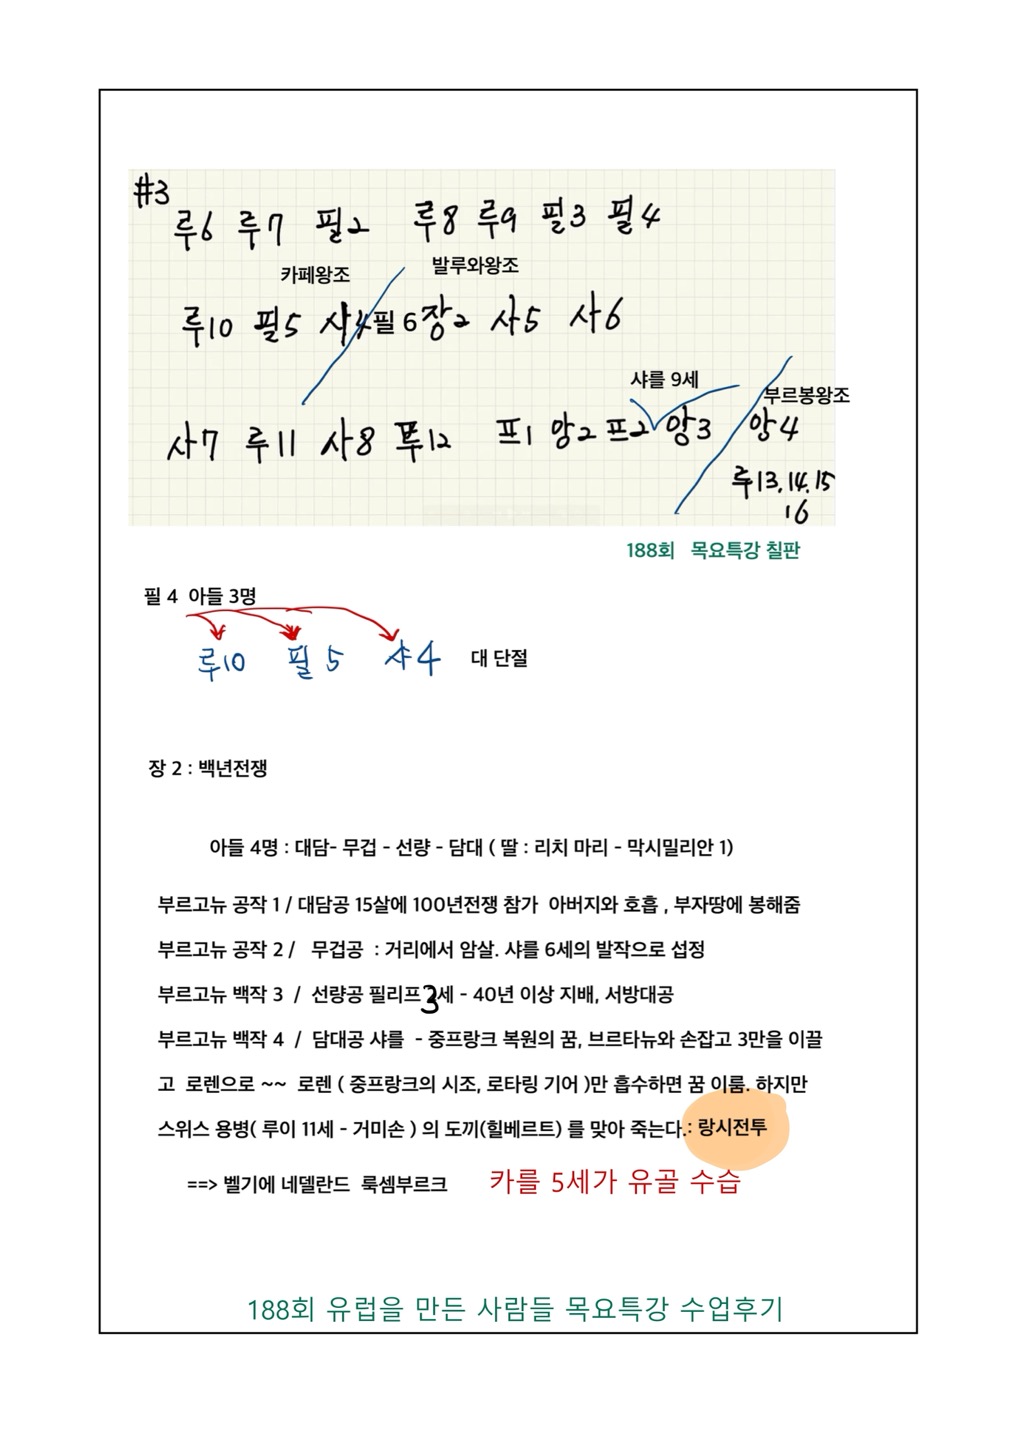 #3
루6 루7 필2 루8 루9 필3 필4
카페왕조 발루와왕조
루10 필5 샤4 필 6 장2 샤5 샤6
샤를 9세 부르봉왕조
샤7 루11 샤8 루12 프1 앙2 프2 앙3 앙4
루13, 14, 15
16
188회 목요특강 칠판
필 4 아들 3명
루10 필 5 샤4 대 단절
장 2 : 백년전쟁
아들 4명 : 대담- 무겁 - 선량 - 담대 ( 딸 : 리치 마리 - 막시밀리안 1)
부르고뉴 공작 1 / 대담공 15살에 100년전쟁 참가 아버지와 호흡 , 부자땅에 봉해줌
부르고뉴 공작 2 / 무겁공 : 거리에서 암살. 샤를 6세의 발작으로 섭정
부르고뉴 백작 3 / 선량공 필리프 3세 - 40년 이상 지배, 서방대공
부르고뉴 백작 4 / 담대공 샤를 - 중프랑크 복원의 꿈, 브르타뉴와 손잡고 3만을 이끌
고 로렌으로 ~~ 로렌 ( 중프랑크의 시조, 로타링 기어 )만 흡수하면 꿈 이룸. 하지만
스위스 용병( 루이 11세 - 거미손 ) 의 도끼(힐베르트) 를 맞아 죽는다.: 랑시전투
==> 벨기에 네델란드 룩셈부르크 카를 5세가 유골 수습
188회 유럽을 만든 사람들 목요특강 수업후기